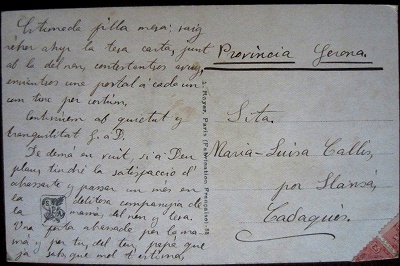 Estimada filla meva: vaig
rebre ahir la teva carta, junt
ab la del nen, contestantvos avuy,
enviantvos una postal á cada un
com tinc per costum.
Continuem ab quietut y
tranquilitat G. a D.
De demá en vuit, si á Deu
plau, tindré la satisfacció d'
abrassarte y passar un mes en
la deliciosa companyía de
la mamá, del nen y teva.
Una forta abrassada per la ma-
má y per tu, del teu papá que
ja sabs que molt t'estima,
J. Royer, Paris (Fabrication Française)
Provincia Gerona.
Sita.
Maria-Luisa Callis,
por Llansá,
Cadaqués.